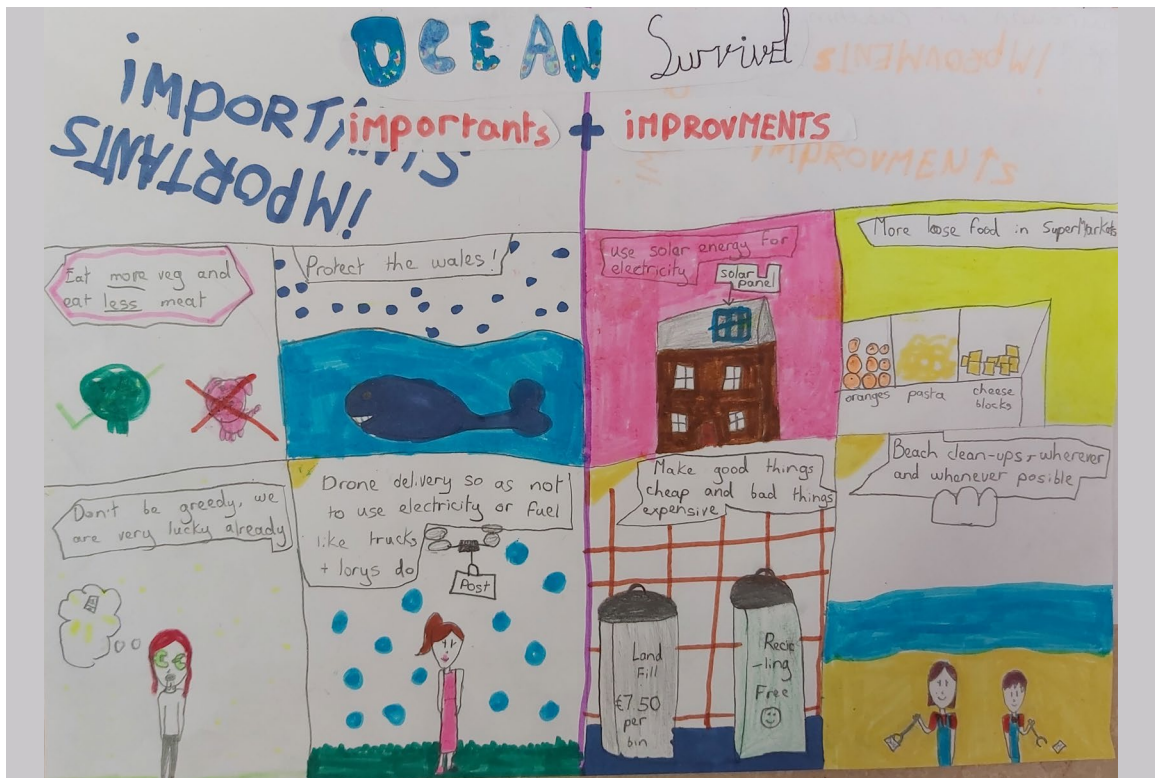 OCEAN Survivel
IMPROVMENTS
IMPORTANTS
IMPORTANTS
importants + IMPROVMENTS
IMPROVMENTS
Eat more veg and
eat less meat
Protect the wales!
use solar energy for
electricity
solar
panel
More loose food in SuperMarkets
oranges
pasta
cheese
blocks
Don't be greedy, we
are very lucky already
Drone delivery so as not
to use electricity or fuel
like trucks
+ lorys do
Post
Make good things
cheap and bad things
expensive
Land
Fill
€7.50
per
bin
Recic
-ling
Free
Beach clean-ups, wherever
and whenever posible